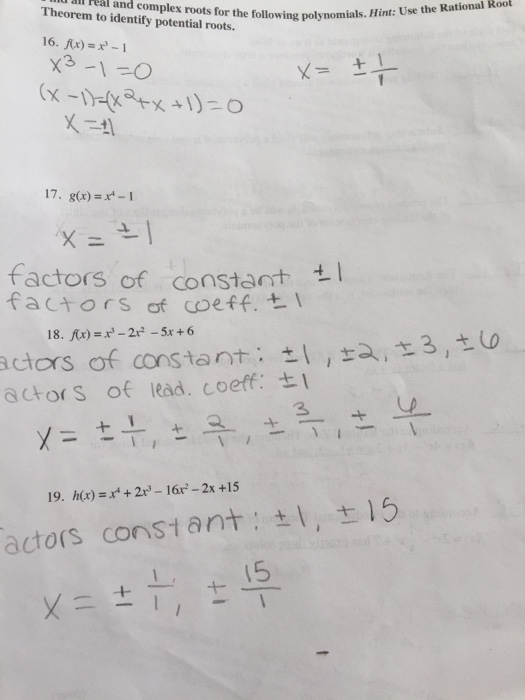 all real and complex roots for the following polynomials. Hint: Use the Rational Root
Theorem to identify potential roots.
16. f(x) = x³ – 1
x³ - 1 = 0
x = ± 1/1
(x - 1)=(x² + x + 1) = 0
x = ±1
17. g(x) = x⁴ – 1
x = ±1
factors of constant ±1
factors of coeff. ±1
18. f(x) = x³ – 2x² – 5x + 6
actors of constant: ±1, ±2, ±3, ±6
actors of lead. coeff: ±1
x = ± 1/1, ± 2/1, ± 3/1, ± 6/1
19. h(x) = x⁴ + 2x³ – 16x² – 2x +15
actors constant: ±1, ±15
x = ± 1/1, ± 15/1